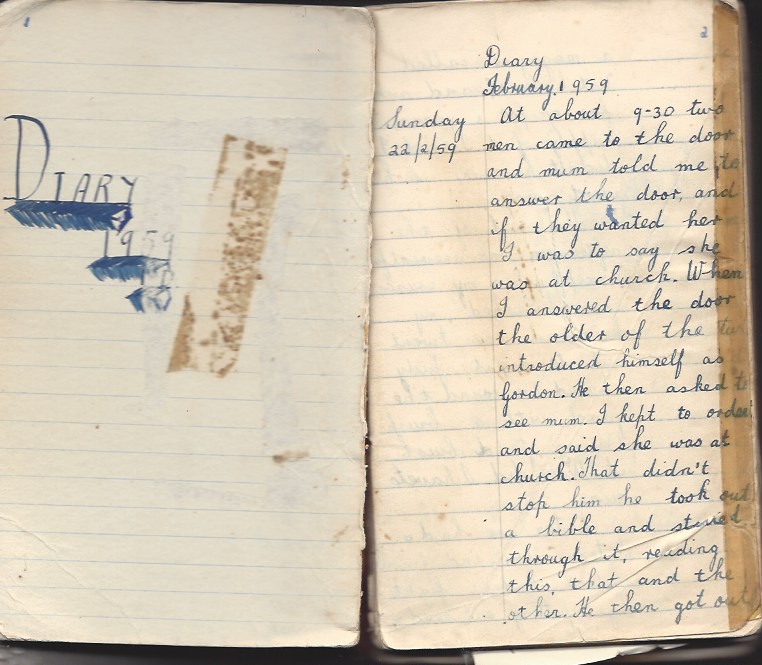 1
DIARY
1959
2
Diary
February 1959
Sunday
22/2/59
At about 9-30 two
men came to the door
and mum told me to
answer the door, and
if they wanted her
I was to say she
was at church. When
I answered the door
the older of the
introduced himself as
Gordon. He then asked to
see mum. I kept to order
and said she was at
church. That didn't
stop him he took out
a bible and
through it, reading
this, that and the
other. He then got out